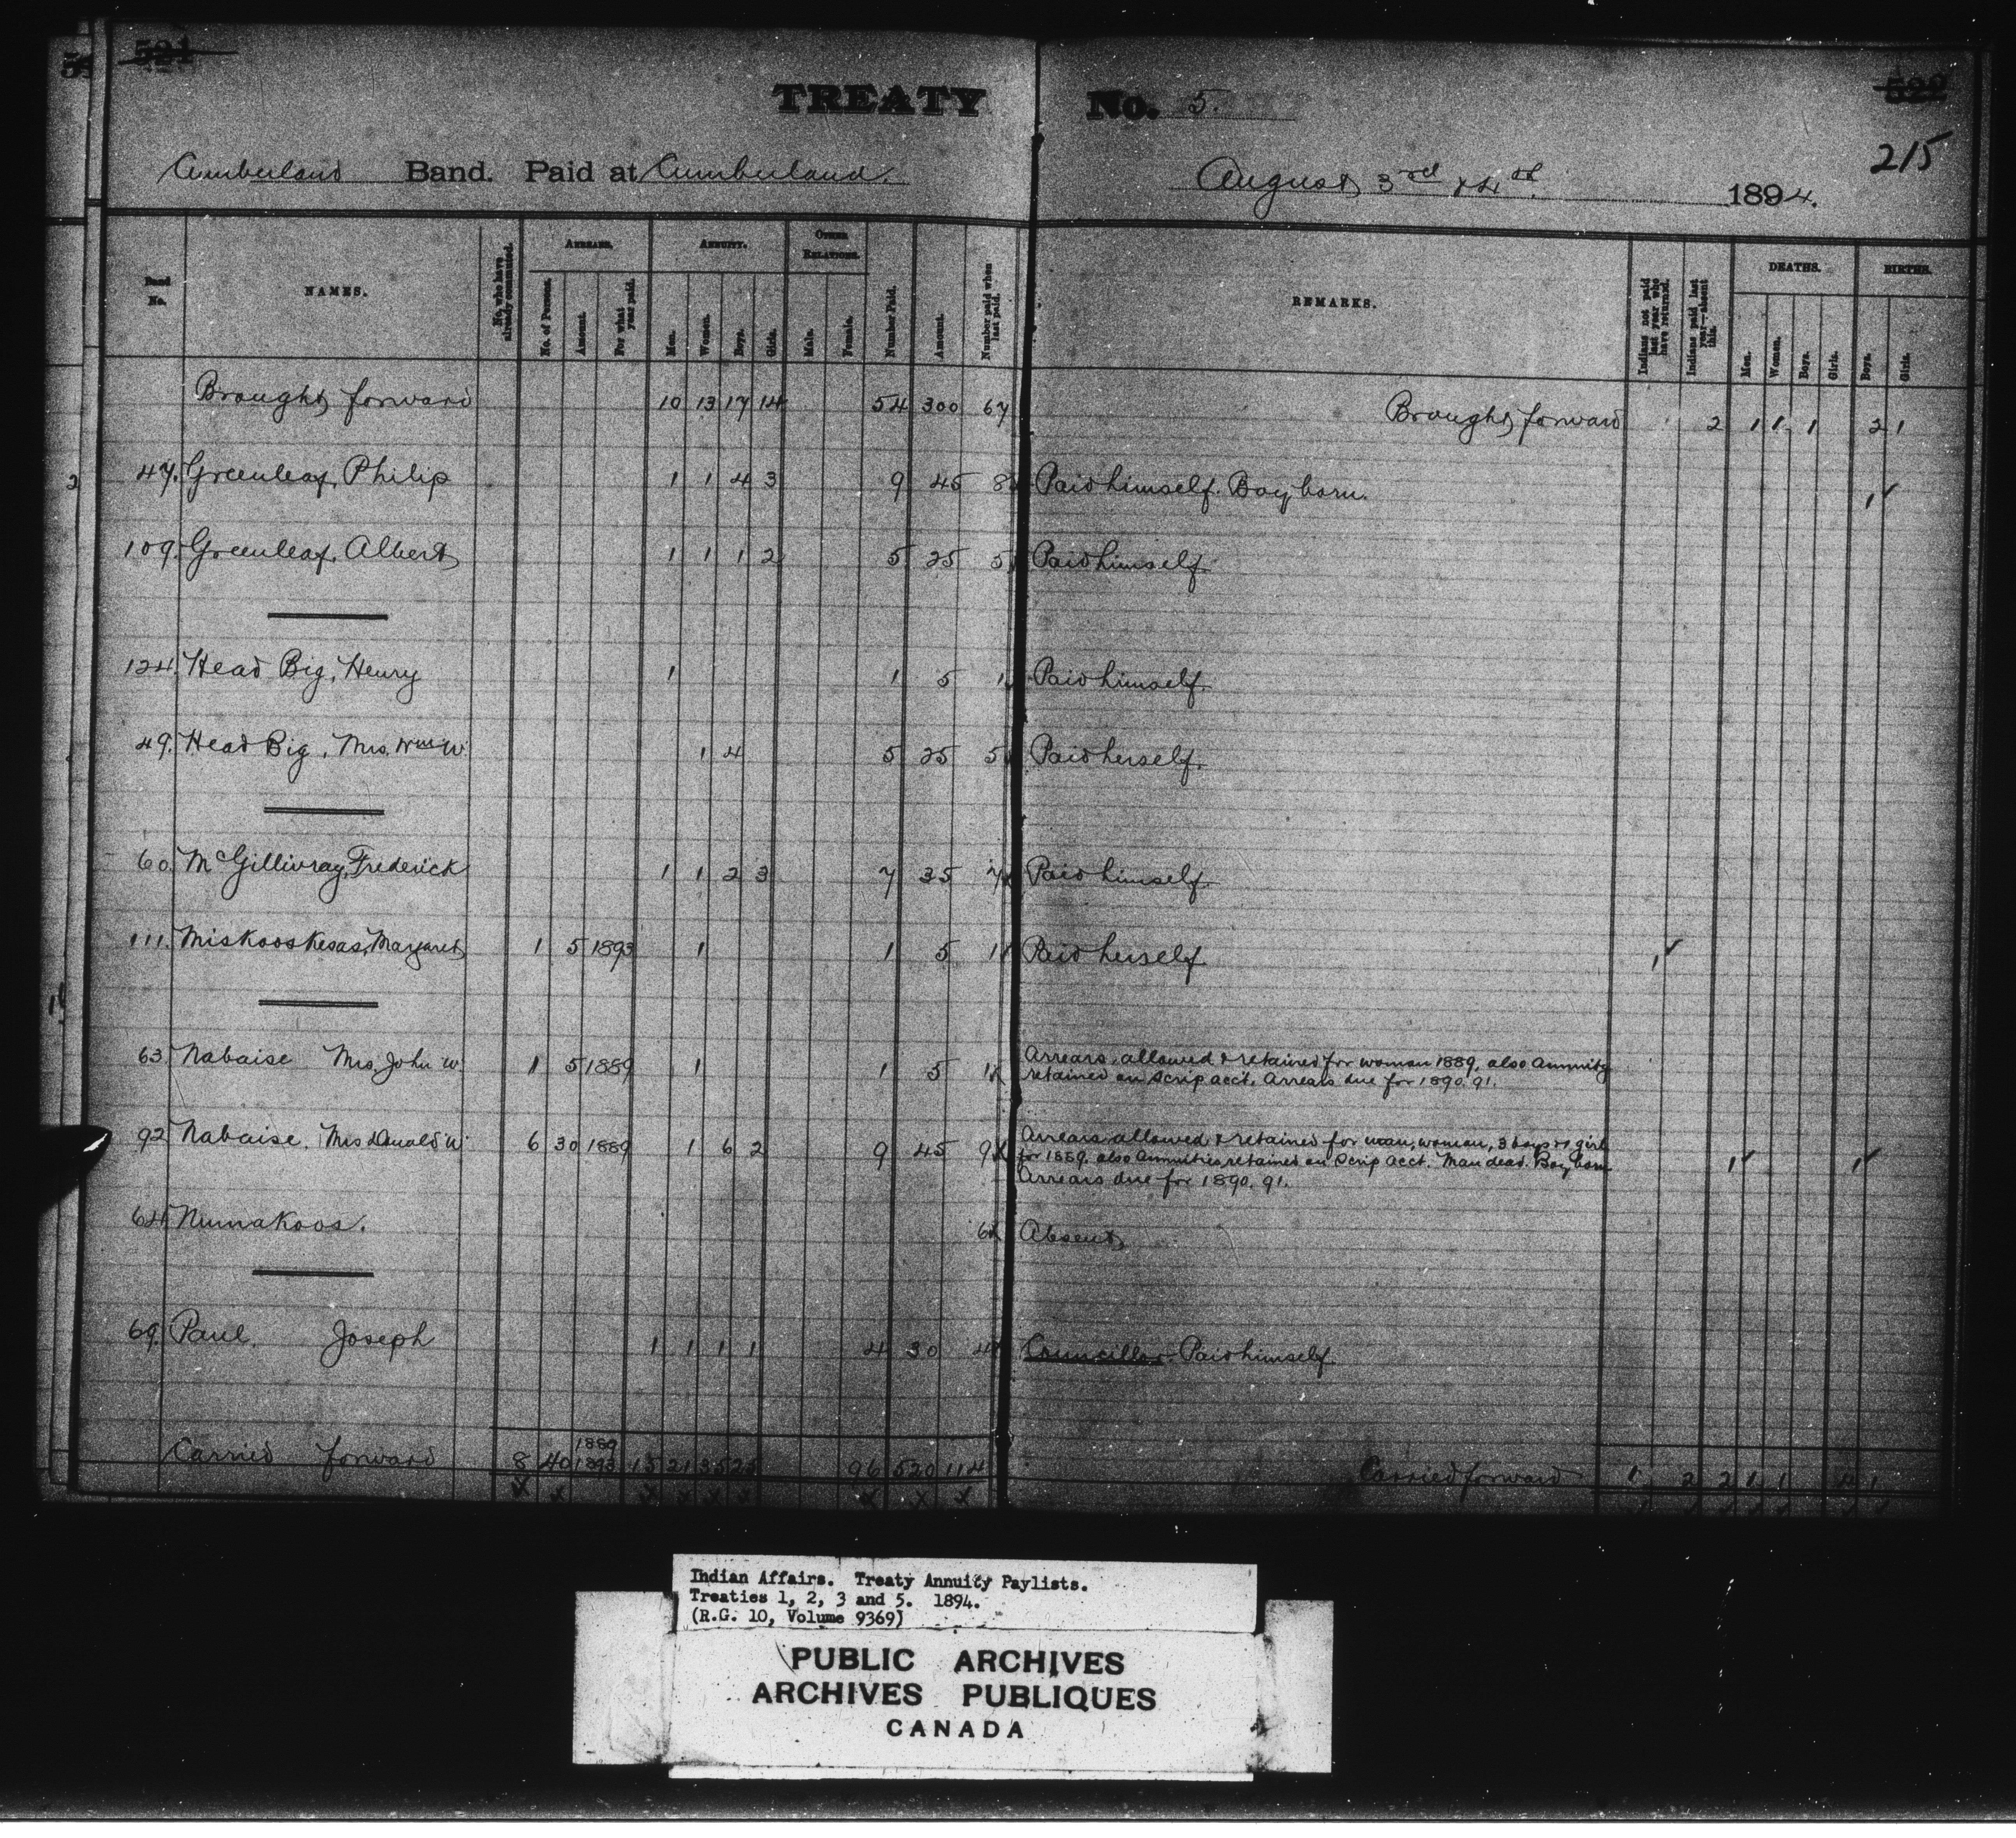 521
TREATY No. 5.
215
Cumberland Band. Paid at Cumberland. August 3rd & 4th 1894.
Band No.
NAMES.
No. who have already commuted.
ARREARS.
No. of Persons.
Amount.
For what year paid.
ANNUITY.
Men.
Women.
Boys.
Girls.
OTHER RELATIONS.
Male.
Female.
Number Paid.
Amount.
Number paid when last paid.
REMARKS.
Indians not paid last year who have returned.
Indians paid last year—absent this.
DEATHS.
Men.
Women.
Boys.
Girls.
BIRTHS.
Boys.
Girls.
Brought forward 10 13 17 14 54 300 67 Brought forward 2 1 1 1 2 1
47. Greenleaf, Philip 1 1 4 3 9 45 8 Paid himself. Boy born. 1
109. Greenleaf, Albert 1 1 1 2 5 25 5 Paid himself.
124. Head Big, Henry 1 1 5 1 Paid himself.
49. Head Big, Mrs. Wm W. 1 4 5 25 5 Paid herself.
60. McGillivray, Frederick 1 1 2 3 7 35 7 Paid himself.
111. Miskooskesas, Margaret 1 5 1893 1 1 5 1 Paid herself 1
63. Nabaise Mrs. John W. 1 5 1889 1 1 5 1 Arrears allowed & retained for woman 1889, also Annuity
retained on Scrip acct. Arrears due for 1890. 91.
92 Nabaise. Mrs Donald W. 6 30 1889 1 6 2 9 45 9 Arrears allowed & retained for man, woman, 3 boys & 1 girl
for 1889. also Annuities retained on Scrip acct. Man dead. Boy born 1 1
Arrears due for 1890. 91.
64 Numakoos. 6 Absent
69. Paul, Joseph 1 1 1 1 4 30 4 Councillor. Paid himself.
Carried forward 8 40 1889 1893 15 21 35 25 96 520 114 Carried forward 1 2 2 1 1 4 1
Indian Affairs. Treaty Annuity Paylists.
Treaties 1, 2, 3 and 5. 1894.
(R.G. 10, Volume 9369)
PUBLIC ARCHIVES
ARCHIVES PUBLIQUES
CANADA